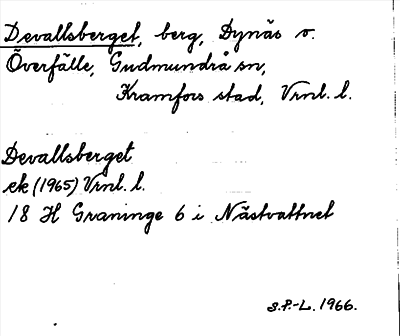 Devallsberget, berg, Dynäs v.
Överfälle, Gudmundrå sn,
Kramfors stad, Vrnl. l.
Devallsberget
ek (1965) Vrnl. l.
18 H Graninge 6 i Nästvattnet
S.P.-L. 1966.